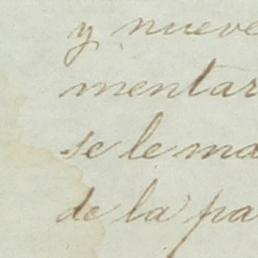 y nueve
mentar
se le ma
de la pa